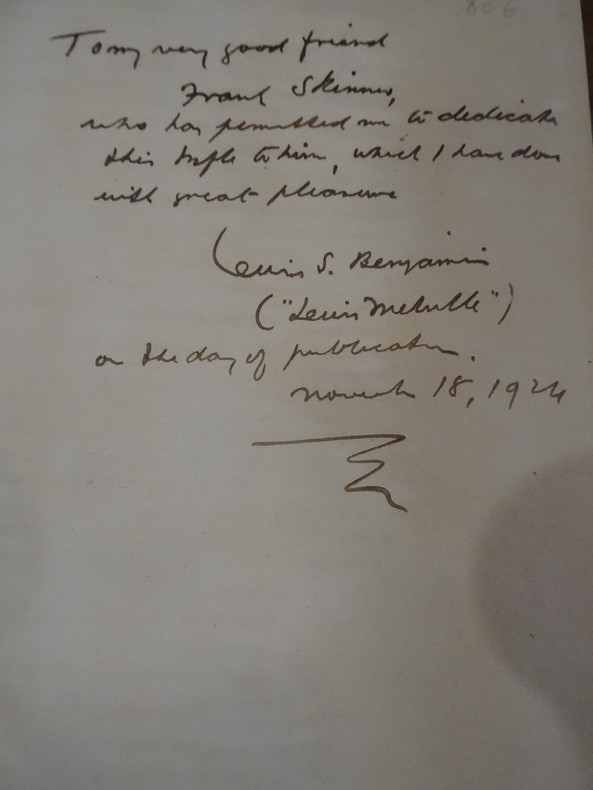 To my very good friend
Frank Skinner,
who has permitted me to dedicate
this trifle to him, which I have done
with great pleasure
Lewis S. Benjamin
("Lewis Melville")
on the day of publication.
November 18, 1924